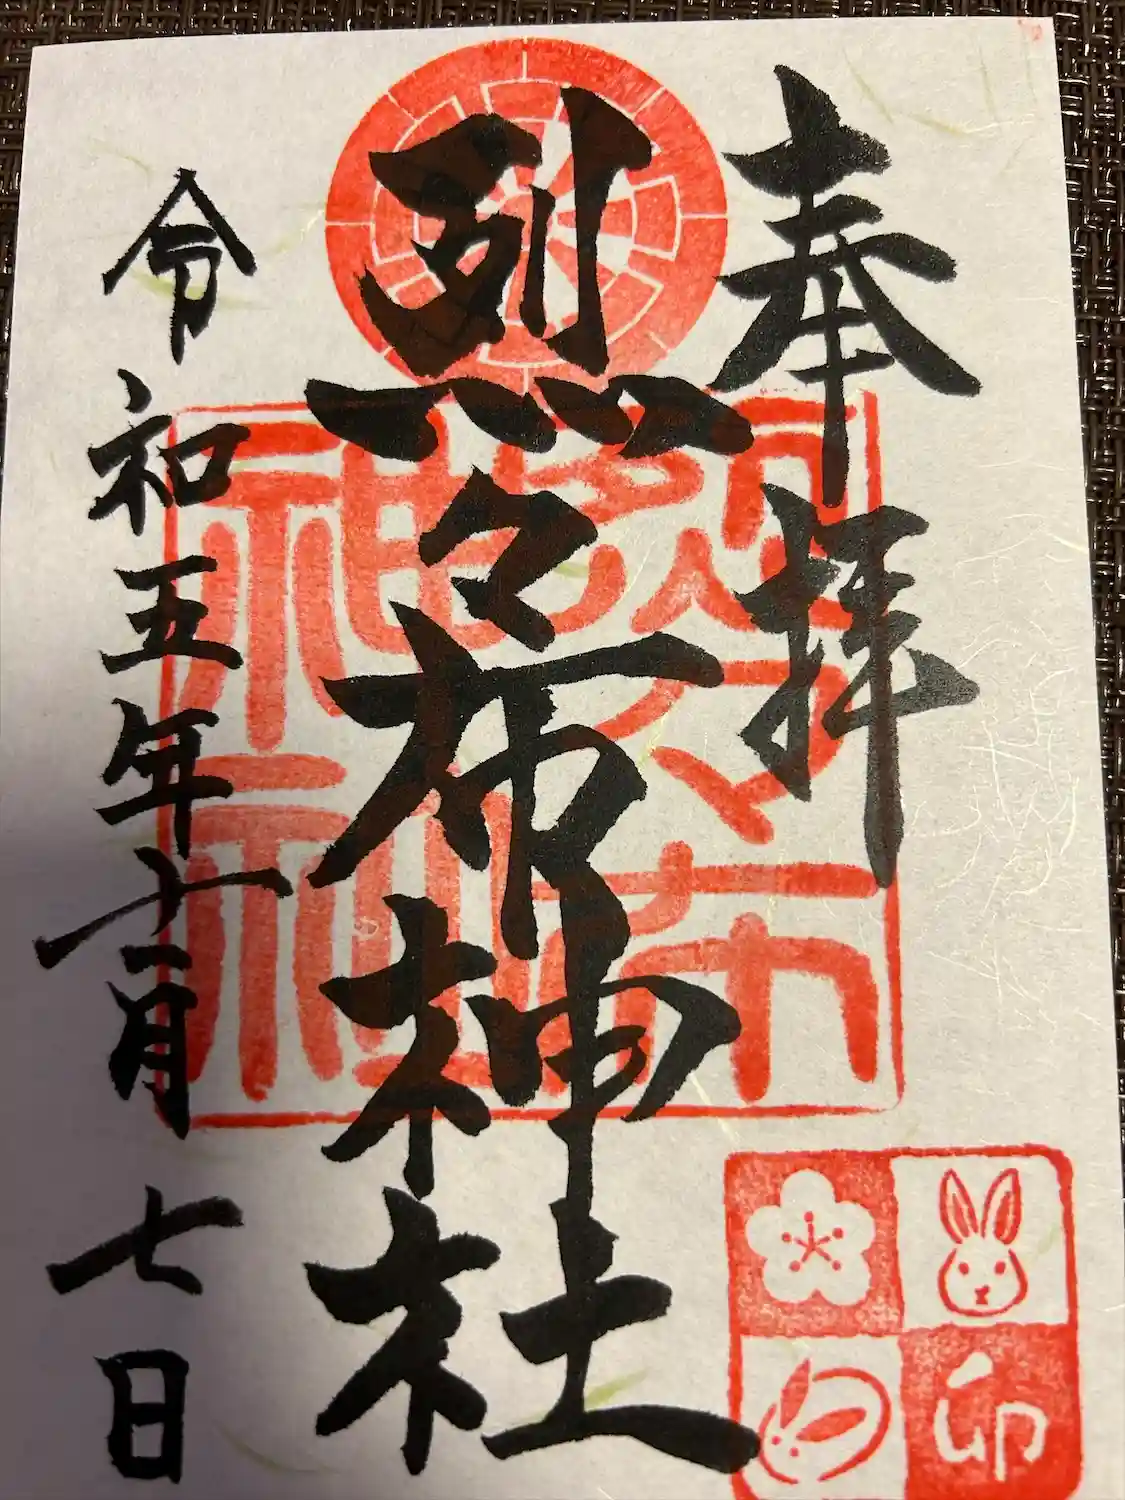 奉拝
烈々布神社
令和五年十一月七日
烈々布
神社
卯